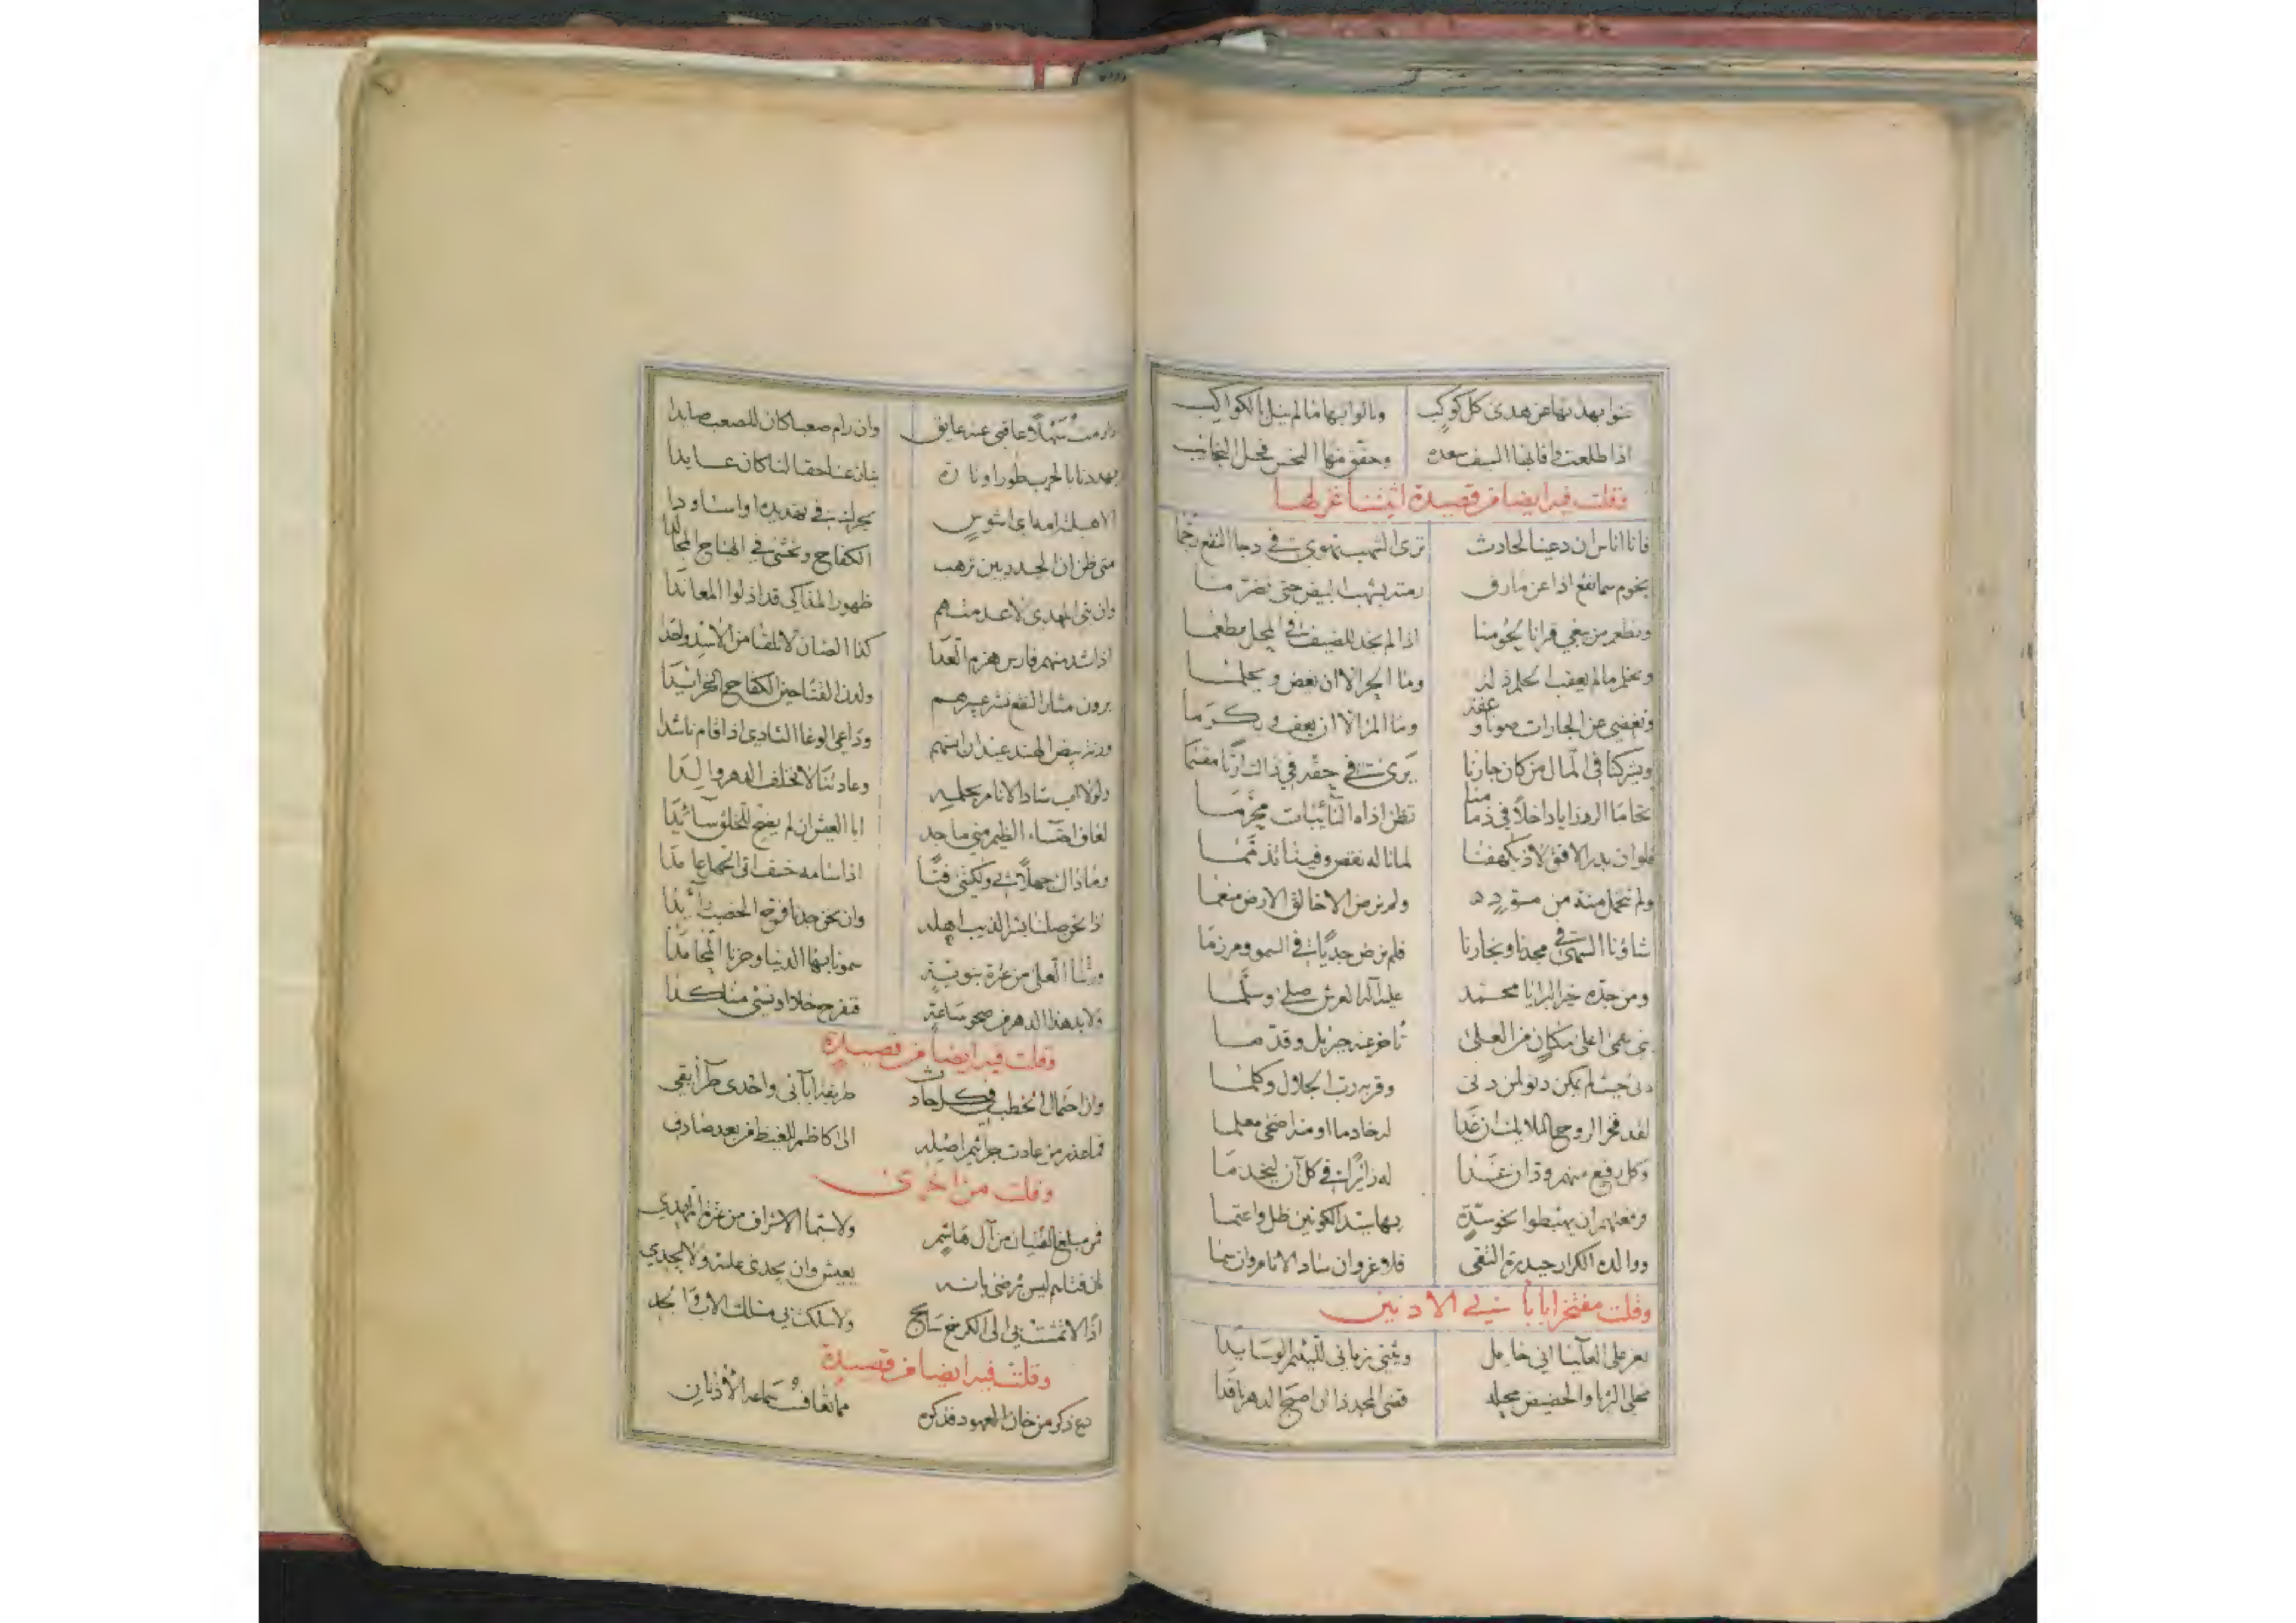 بنوا بهذبها عن هدى كل كوكب ونالوا بها ما لم ينل بالكواكب
اذا طلعت في افاقها السيف سعده وحقق منها النحس فحل النجائب
وقلت فيه ايضا من قصيدة اثبتنا غزلها
فانا اناس ان دعينا لحادث ترى الشهب تهوي في دجا النقع رجما
نجوم سما نقع اذا عن مارق رمته بشهب البيض حتى تضرما
ونطعم من يبغي قرانا لحومنا اذا لم يجد للضيف في المحل مطعما
ونحلم ما لم يعقب الحلم ذلة وما الحر الا ان يغض ويحلما
ونغضي عن الجارات صونا وعفة وما المرء الا ان يعف ويكرما
ويشركنا في المال من كان جارنا يرى في حقه في ذاك ارثا مقسما
تحاما الرزايا داخلا في ذمامنا تظن اذاه النائبات محرما
فلو ان بدر الافق لاذ بكهفنا لما ناله نقص وفينا تذمما
ولم نتحمل منة من مسوده ولم نرض الا خالق الارض منعما
شاؤنا السهى في مجدنا ونجارنا فلم نرض جديا في السمو ومرزما
ومن جده خير البرايا محمد عليه آله العرش صلى وسلما
نبي رقى اعلى مكان من العلى تاخر عنه جبريل وقدما
دنى حيث لم يمكن دنو لمن دنى وقربه رب الجلال وكلما
لقد فخر الروح الملايك ان غدا له خادما او منه اضحى معلما
وكل رفيع منهم ود ان غدا له زائرا في كل آن ليخدما
ومنعهم ان يهبطوا نحو سدة بها سيد الكونين ظل واعتما
ووالده الكرار حيدرة التقى فلا غرو ان ساد الانام وان سما
وقلت مفتخرا باباءي الادنين
يعز على العلياء اني خامل ويثني زماني للئيم الوسايدا
محلي الثريا والحضيض محله قضى المجد ذا ان اصبح الدهر ناقدا
وان رمت سهلا عاقني عنه عايق وان رام صعبا كان للصعب صايدا
يهددنا بالحرب طورا وتارة بنان عنا حقا لنا كان عايدا
متى ظن ان الجد دبين ترهب الكفاح ونخشى في الهياج المجالدا
وان بني المهدي لا عد منهم ظهور المذاكي قد اذلوا المعاندا
اذا شد منهم فارس هزم العدا كذا الضان لا تلقا من الاسد واحدا
يرون مثار النقع نشر عبيرهم ولدن القنا حين الكفاح الخرائدا
ورنة بيض الهند عيدان انسهم وداعي الوغا الشادي اذا قام ناشدا
ولولا اب ساد الانام بحلمه وعادتنا لا تخلف الدهر والدا
لعاف احتساء الظيم مني ماجد ابا العيش ان لم يضح للخلق سائدا
وما ذاك جهلا بي ولكنني فتا اذا سامه خسف اتى الحمام عامدا
اذا نحن صلنا بشر الذيب اهله وان نحن جدنا فرح الخصب رائدا
ورثنا العلى من عزة نبوية سمونا بها الدنيا وحزنا المحامدا
ولا بد هذا الدهر من صحو ساعة فتفرح خلا او نسئ مناكدا
وقلت فيه ايضا من قصيدة
وان احتمال الخطب في كل حادث طريقة آبائي واحدى طرائقي
فما عذر من عادت جرائم اصله الى كاظم للغيظ من بعد صادق
وقلت من اخرى
فمن مبلغ الفتيان من آل هاشم ولا سيما الاشراف من عزة المهدي
بان فتاهم ليس يرضى بانه يعيش وان يجدى عليه ولا يجدي
اذا لا تمشت بي الى الكرخ سابح ولا سلكت بي مسلك الاب والجد
وقلت فيه ايضا من قصيدة
دع ذكر من خان العهود فذكره مما تعاف سماعه الأذنان